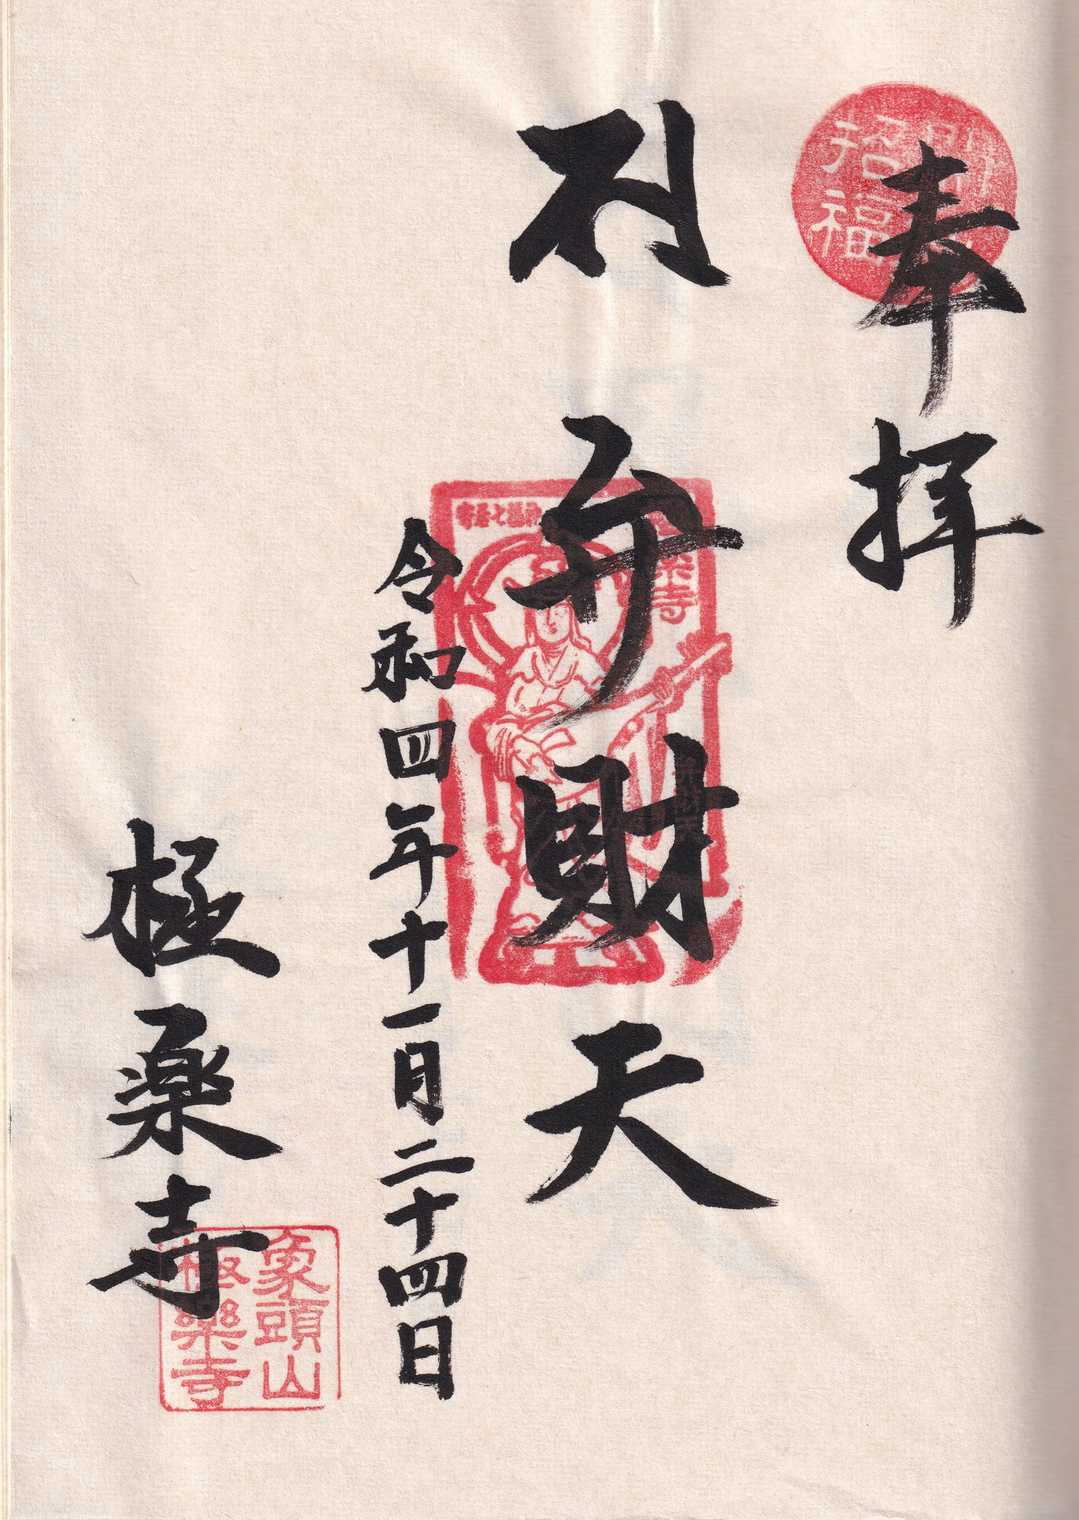 招福
奉拝
弁財天
寄居七福神
令和四年十一月二十四日
極楽寺
象頭山
極樂寺